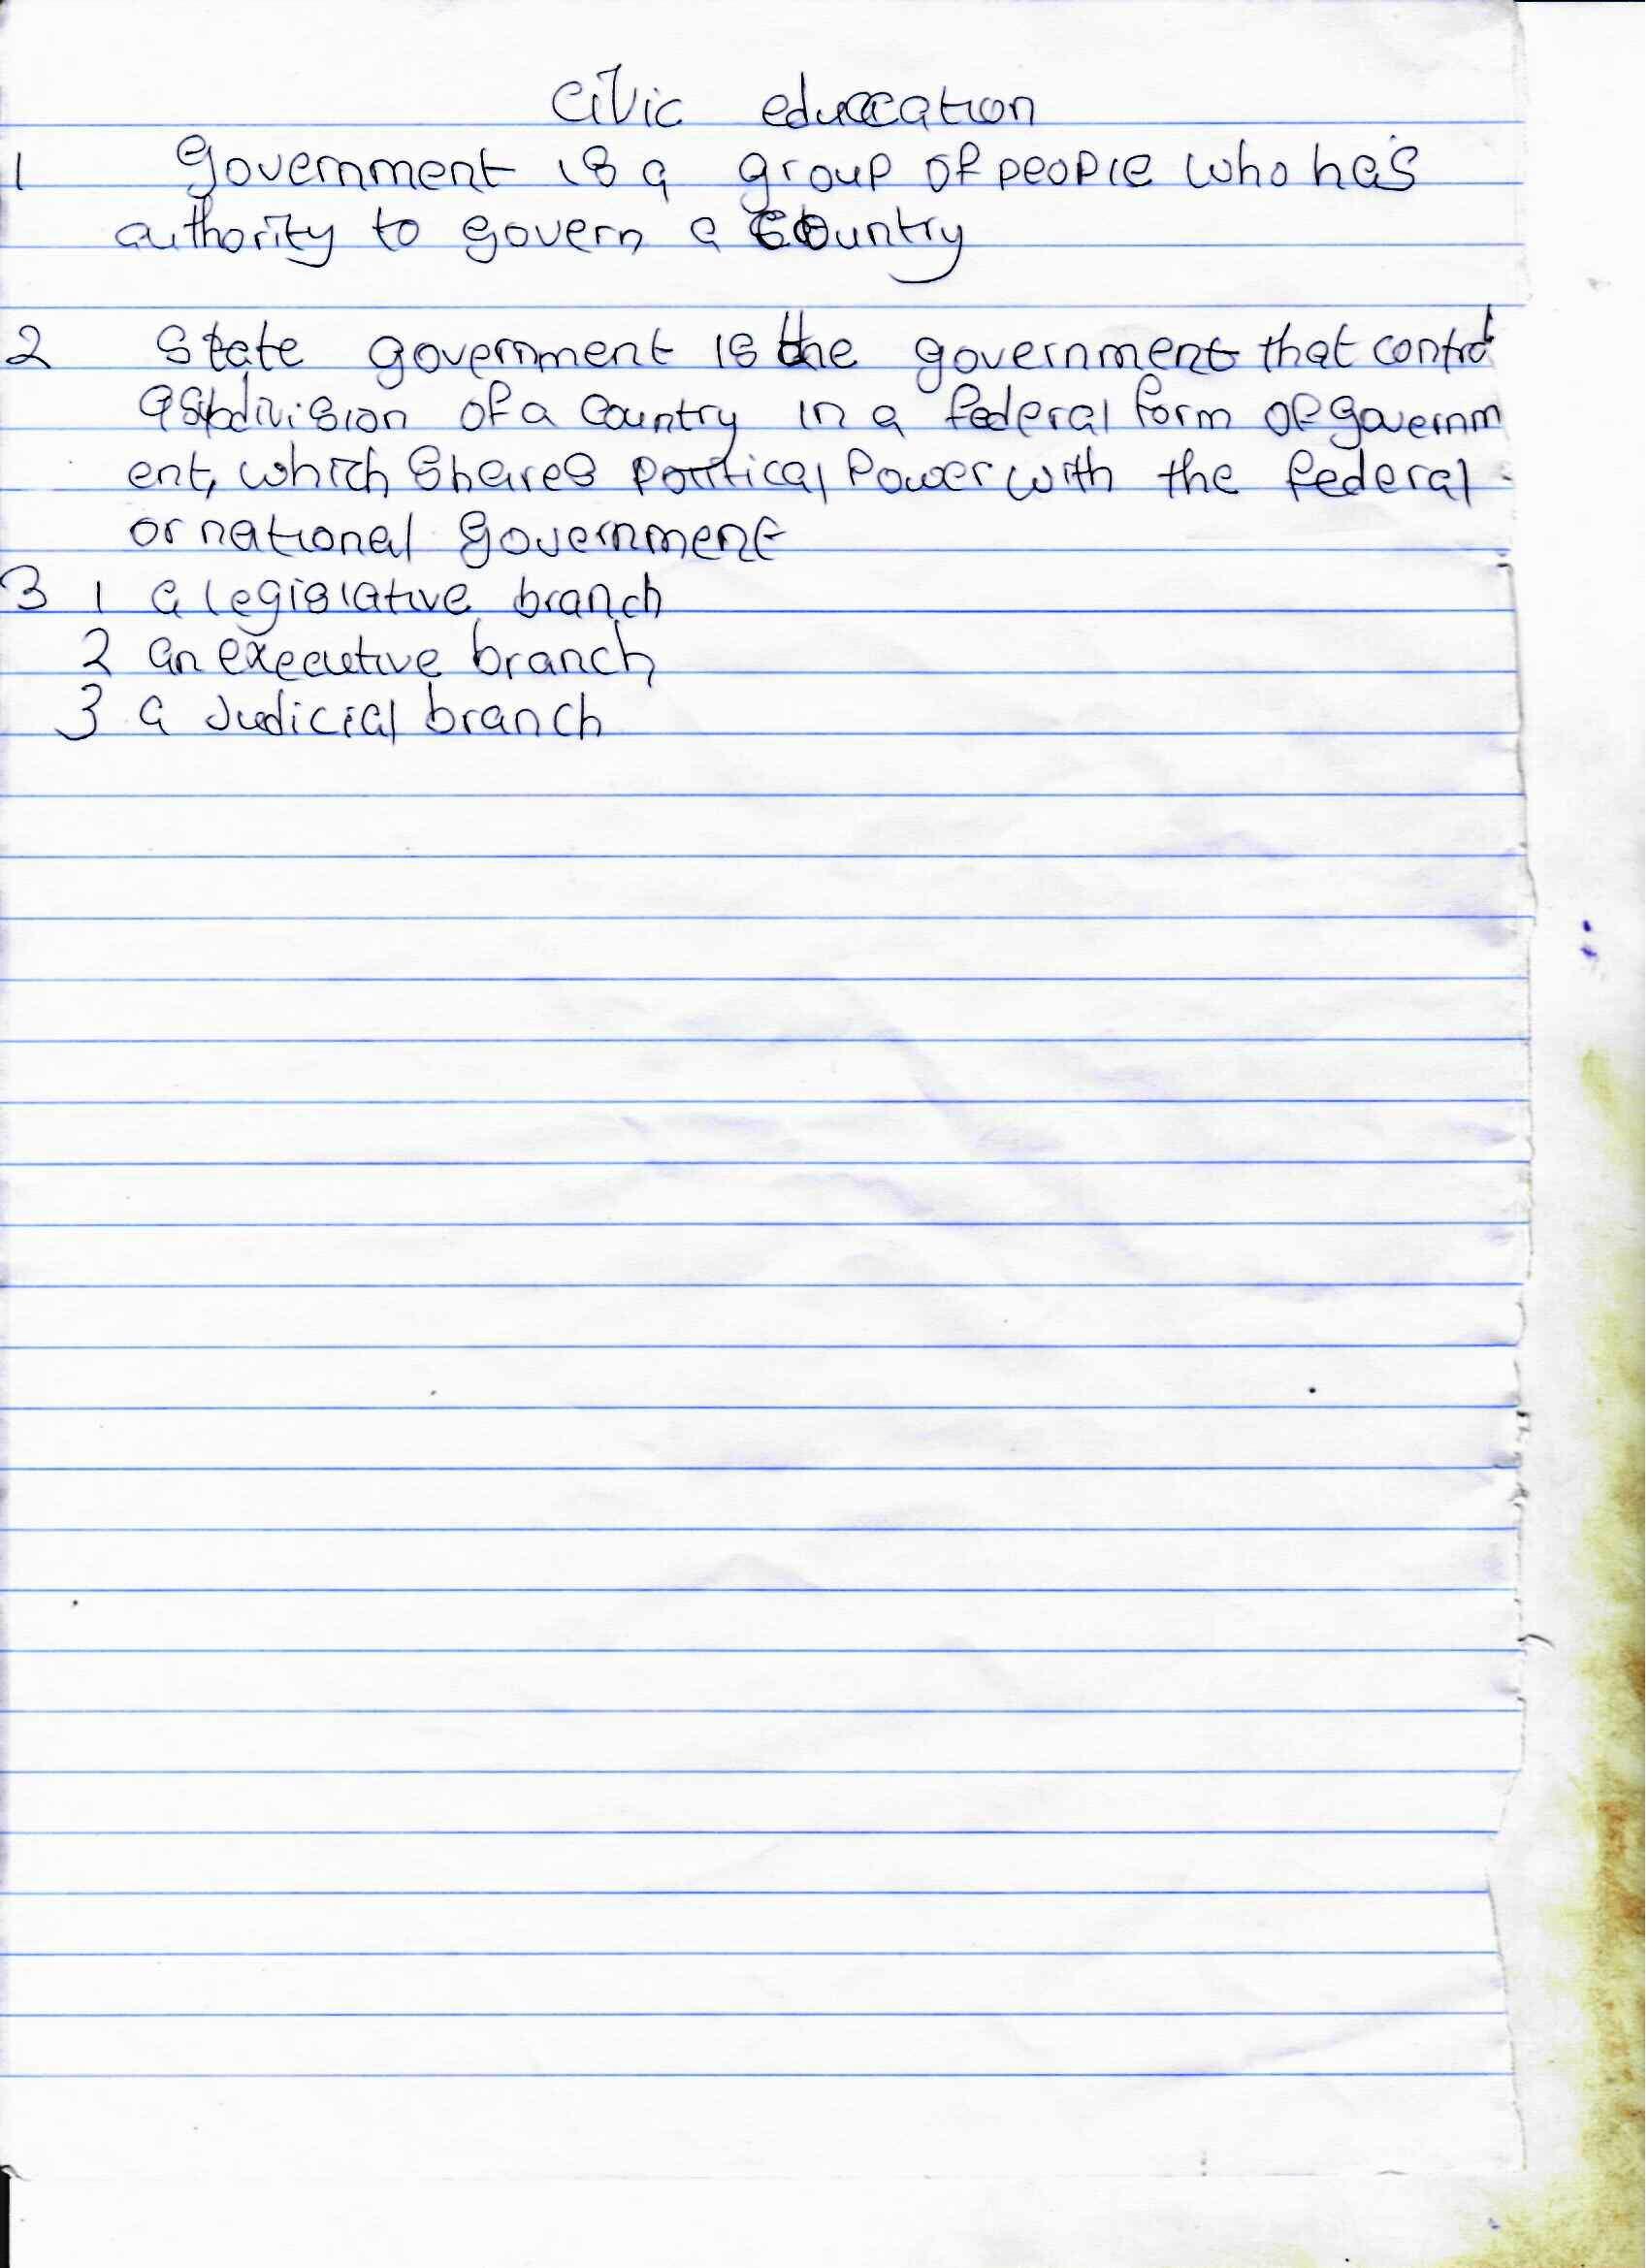 Civic education
1 Government is a group of people who has
authority to govern a country
2 State government is the government that control
a subdivision of a country in a federal form of governm
ent, which shares political power with the federal
or national government
3 1 a legislative branch
2 an executive branch
3 a Judicial branch